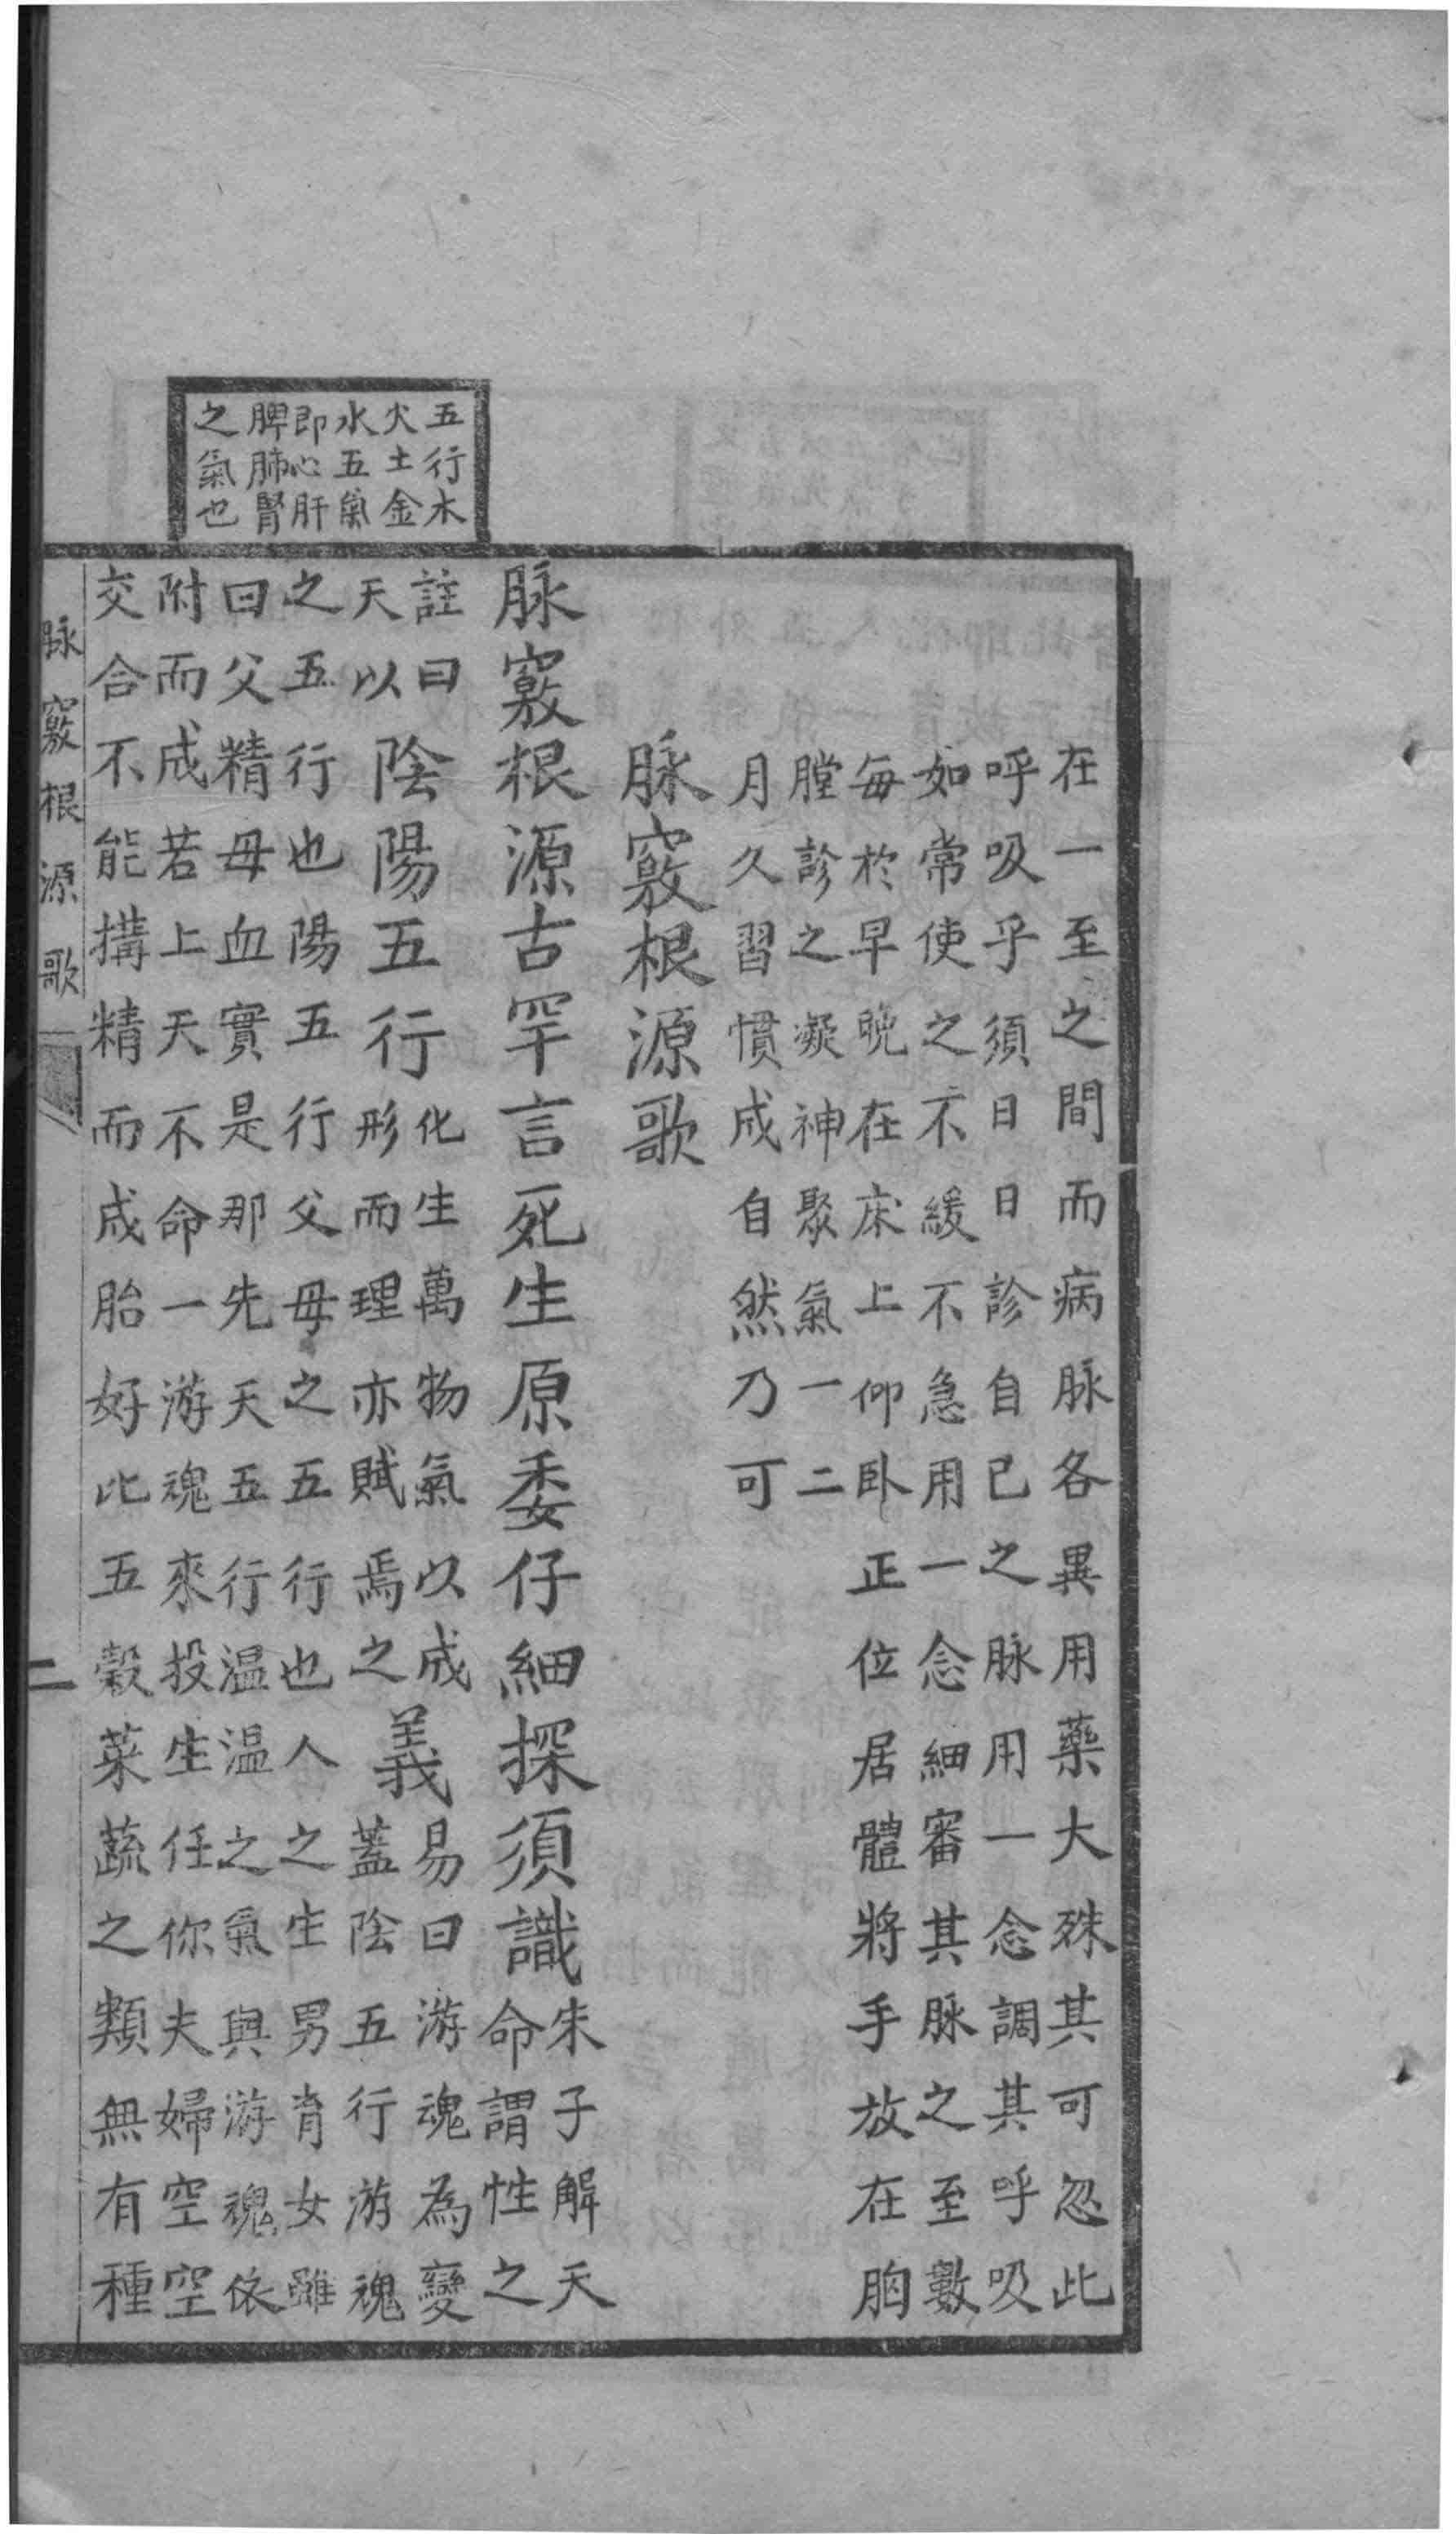 五行木
火土金
水五氣
即心肝
脾肺腎
之氣也
在一至之間而病脉各異用藥大殊其可忽此
呼吸乎須日日診自己之脉用一念調其呼吸
如常使之不緩不急用一念細審其脉之至數
每於早晚在床上仰卧正位居體將手放在胸
膛診之凝神聚氣一二
月久習慣成自然乃可
脉竅根源歌
脉竅根源古罕言死生原委仔細探須識朱子解天
命謂性之
註曰
天以陰陽五行化生萬物氣以成
形而理亦賦焉之義易曰游魂為變
蓋陰五行游魂
之五行也陽五行父母之五行也人之生男育女雖
曰父精母血實是那先天五行温温之氣與游魂依
附而成若上天不命一游魂來投生任你夫婦空空
交合不能搆精而成胎好比五穀菜蔬之類無有種
脉竅根源歌
二